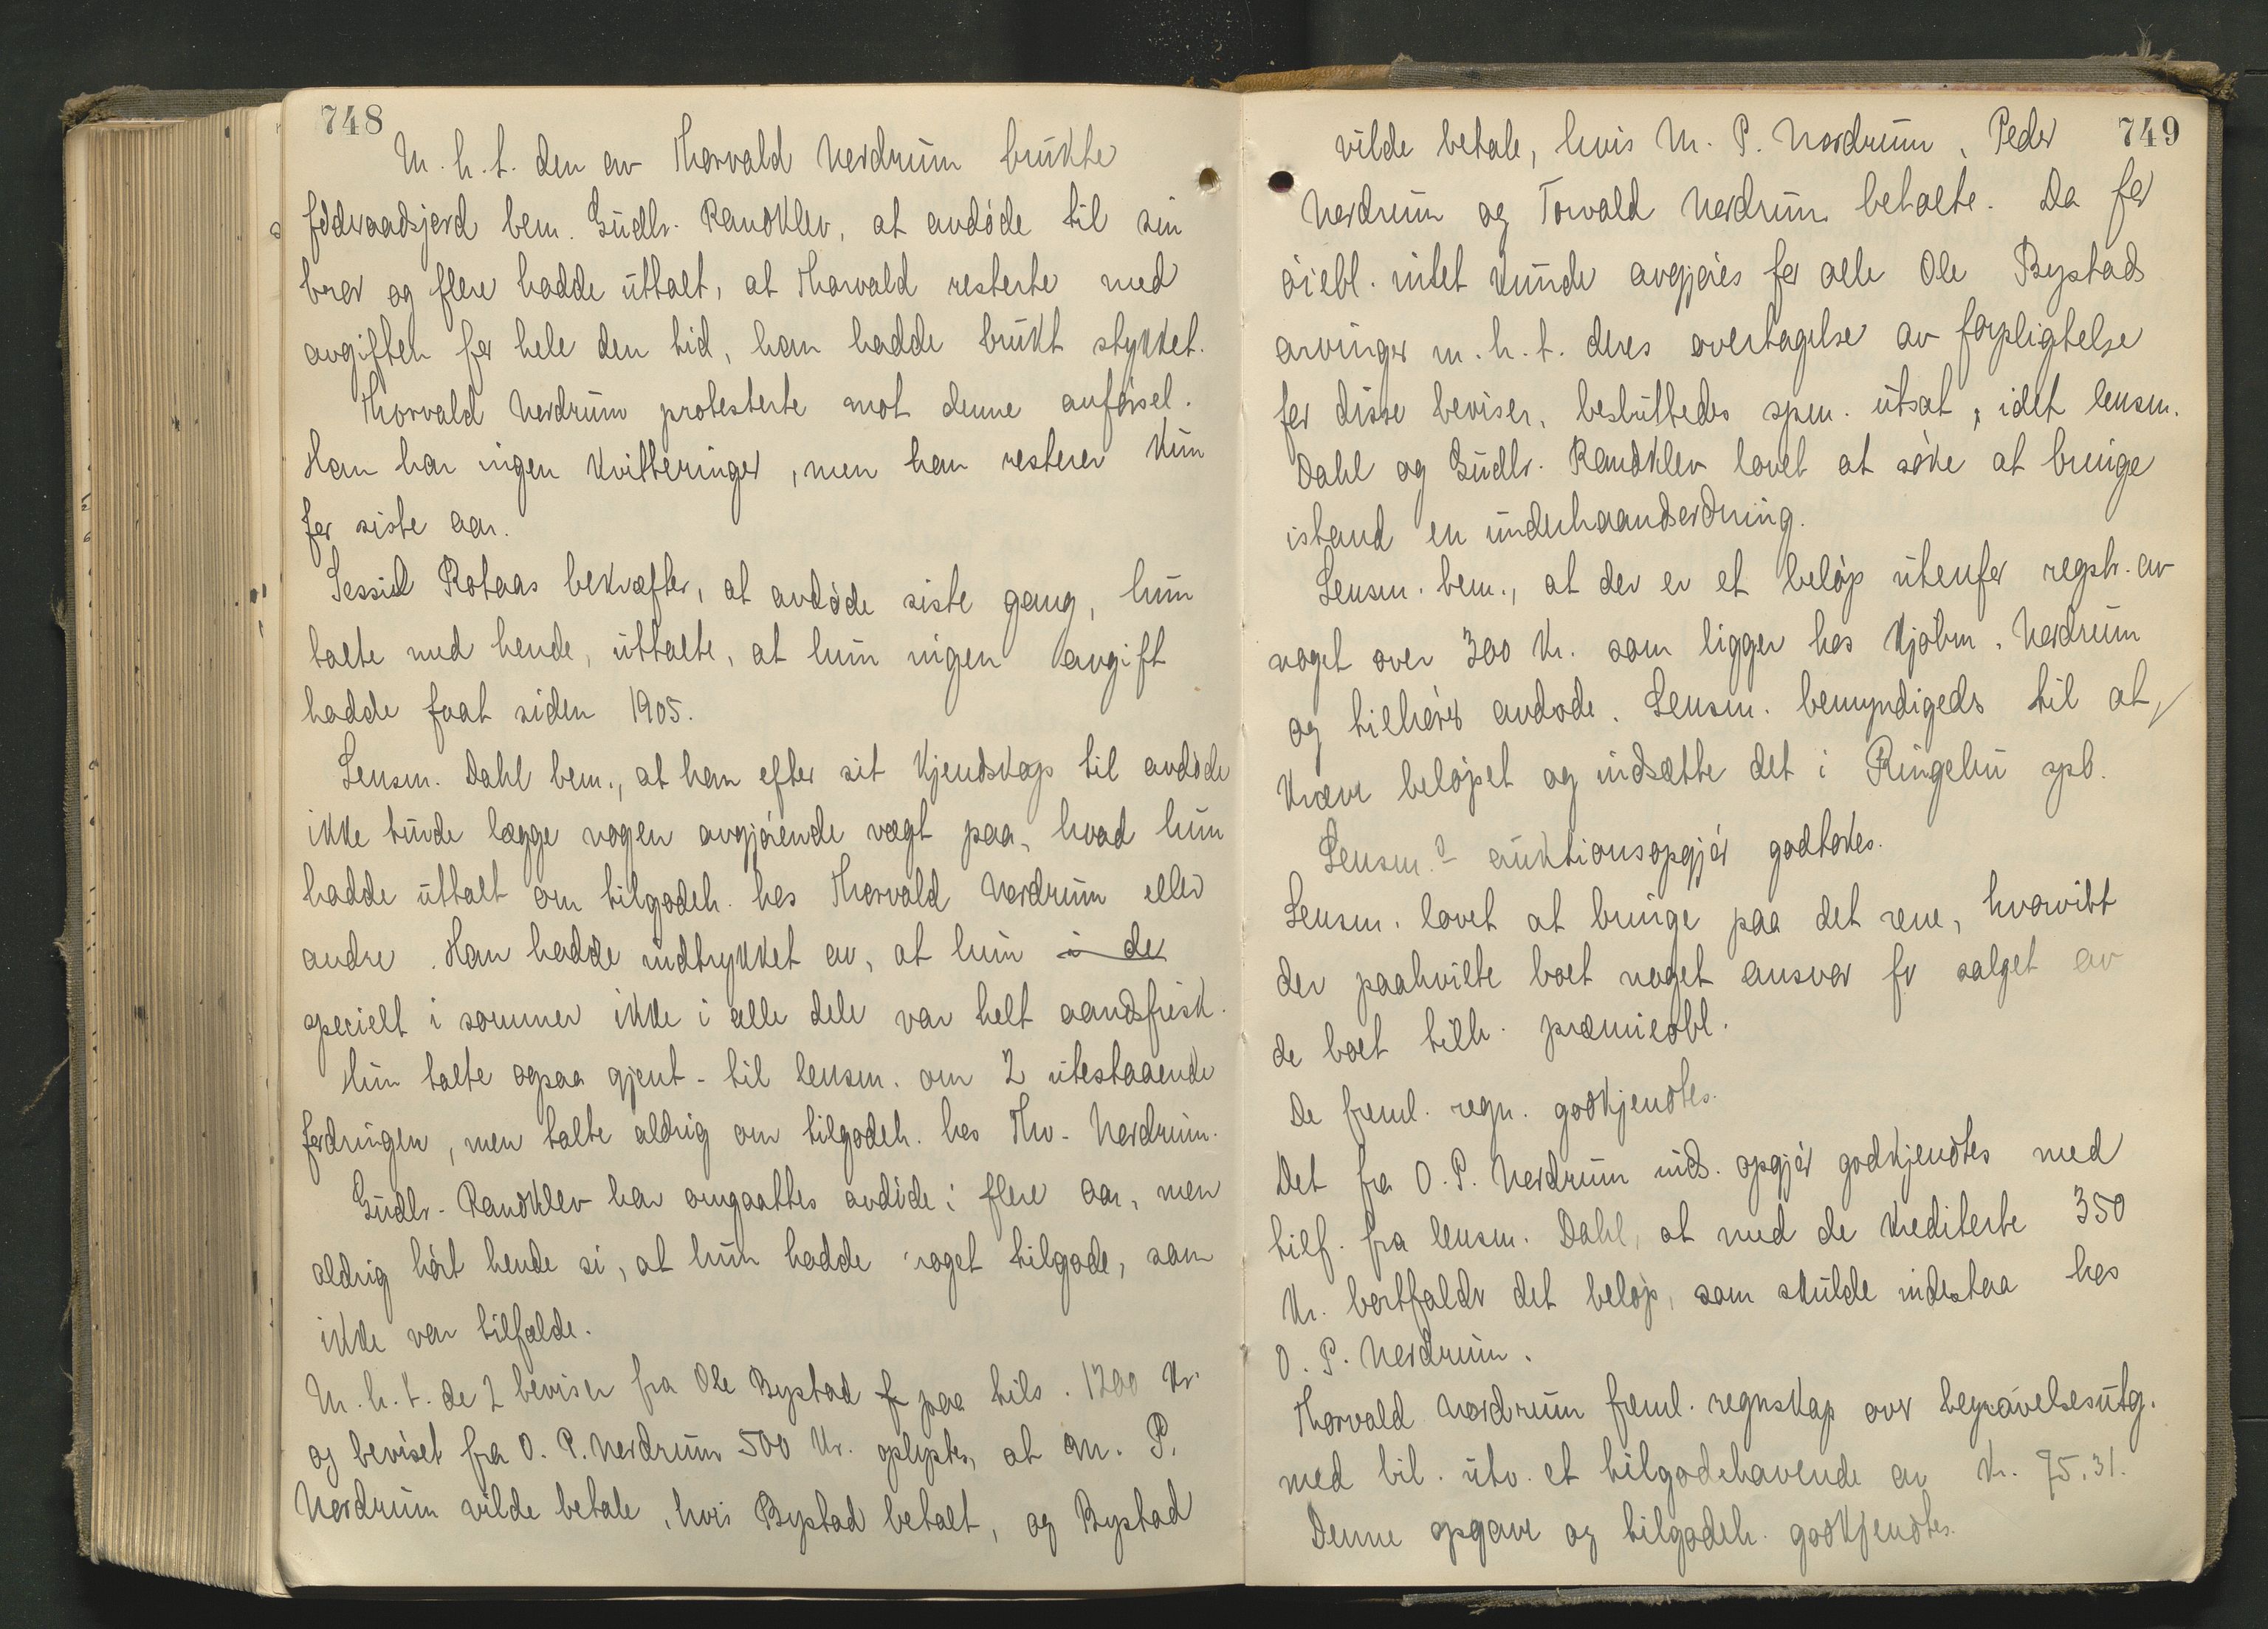 748
M. h. t. den av Thorvald Nordrum brukte
föderaadsjord bem. Gudbr. Randklev, at avdöde til sin
bror og flere hadde uttalt, at Thorvald resterte med
avgiften for hele den tid, han hadde brukt stykket.
Thorvald Nordrum protesterte mot denne anförsel.
Han har ingen kvitteringer, men han resterer kun
for siste aar.
Sessil Rotaas bekræfter, at avdöde siste gang, hun
talte med hende, uttalte, at hun ingen avgift
hadde faat siden 1905.
Lensm. Dahl bem., at han efter sit kjendskap til avdöde
ikke turde lægge nogen avgjörende vægt paa, hvad hun
hadde uttalt om tilgodeh. hos Thorvald Nordrum eller
andre. Han hadde indtrykket av, at hun i de
specielt i sommer ikke i alle dele var helt aandsfrisk.
Hun talte ogsaa gjent. til lensm. om 2 utestaaende
fordringer, men talte aldrig om tilgodeh. hos Thv. Nordrum.
Gudbr. Randklev har omgaattes avdöde i flere aar, men
aldrig hört hende si, at hun hadde noget tilgode, som
ikke var tilfælde.
M. h. t. de 2 beviser fra Ole Bystad f paa tils. 1200 kr.
og beviset fra O. P. Nordrum 500 kr. oplystes, at M. P.
Nordrum vilde betale, hvis Bystad betalt, og Bystad
749
vilde betale, hvis M. P. Nordrum, Peder
Nordrum og Torvald Nordrum betalte. Da for
öiebl. intet kunde avgjöres for alle Ole Bystads
arvinger m. h. t. deres overtagelse av forpligtelse
for disse beviser, besluttedes spm. utsat, idet lensm.
Dahl og Gudbr. Randklev lovet at söke at bringe
istand en underhaandsordning.
Lensm. bem., at der er et belöp utenfor regstr. av
noget over 300 kr. som ligger hos kjöbm. Nordrum
og tilhörer avdöde. Lensm. bemyndigeds til at
kræve belöpet og indsætte det i Ringebu spb.
Lensm.s auktionsopgjör godtokes.
Lensm. lovet at bringe paa det rene, hvorvidt
der paahvilte boet noget ansvar for salget av
de boet tilh. præmieobl.
De freml. regn. godkjendtes.
Det fra O. P. Nordrum inds. opgjör godkjendtes med
tilf. fra lensm. Dahl, at med de krediterte 350
kr. bortfalder det belöp, som skulde indestaa hos
O. P. Nordrum.
Thorvald Nordrum freml. regnskap over begravelsesutg.
med bil. utv. et tilgodehavende av kr. 75.31.
Denne opgave og tilgodeh. godkjendtes.